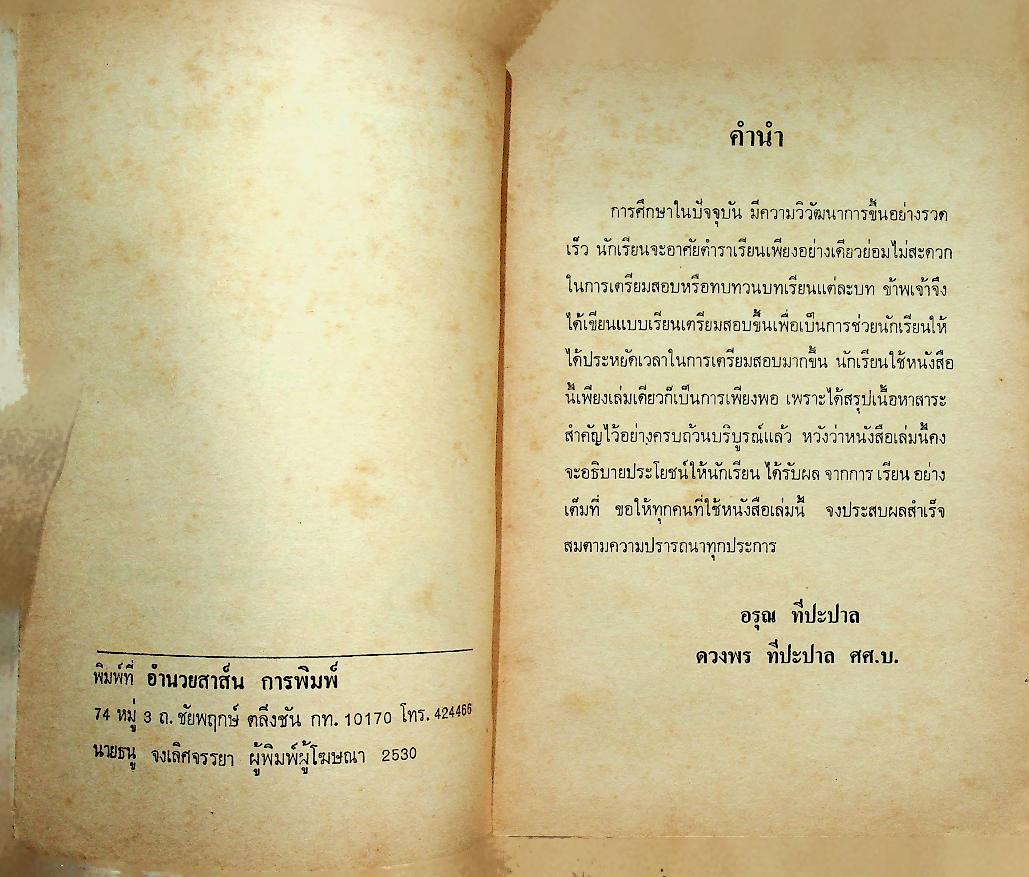 พิมพ์ที่ อำนวยสาส์น การพิมพ์
74 หมู่ 3 ถ. ชัยพฤกษ์ ตลิ่งชัน กท. 10170 โทร. 424466
นายธนู จงเลิศจรรยา ผู้พิมพ์ผู้โฆษณา 2530
คำนำ
การศึกษาในปัจจุบัน มีความวิวัฒนาการขึ้นอย่างรวด
เร็ว นักเรียนจะอาศัยตำราเรียนเพียงอย่างเดียวย่อมไม่สะดวก
ในการเตรียมสอบหรือทบทวนบทเรียนแต่ละบท ข้าพเจ้าจึง
ได้เขียนแบบเรียนเตรียมสอบขึ้นเพื่อเป็นการช่วยนักเรียนให้
ได้ประหยัดเวลาในการเตรียมสอบมากขึ้น นักเรียนใช้หนังสือ
นี้เพียงเล่มเดียวก็เป็นการเพียงพอ เพราะได้สรุปเนื้อหาสาระ
สำคัญไว้อย่างครบถ้วนบริบูรณ์แล้ว หวังว่าหนังสือเล่มนี้คง
จะอธิบายประโยชน์ให้นักเรียน ได้รับผล จากการ เรียน อย่าง
เต็มที่ ขอให้ทุกคนที่ใช้หนังสือเล่มนี้ จงประสบผลสำเร็จ
สมตามความปรารถนาทุกประการ
อรุณ ทีปะปาล
ดวงพร ทีปะปาล ศศ.บ.